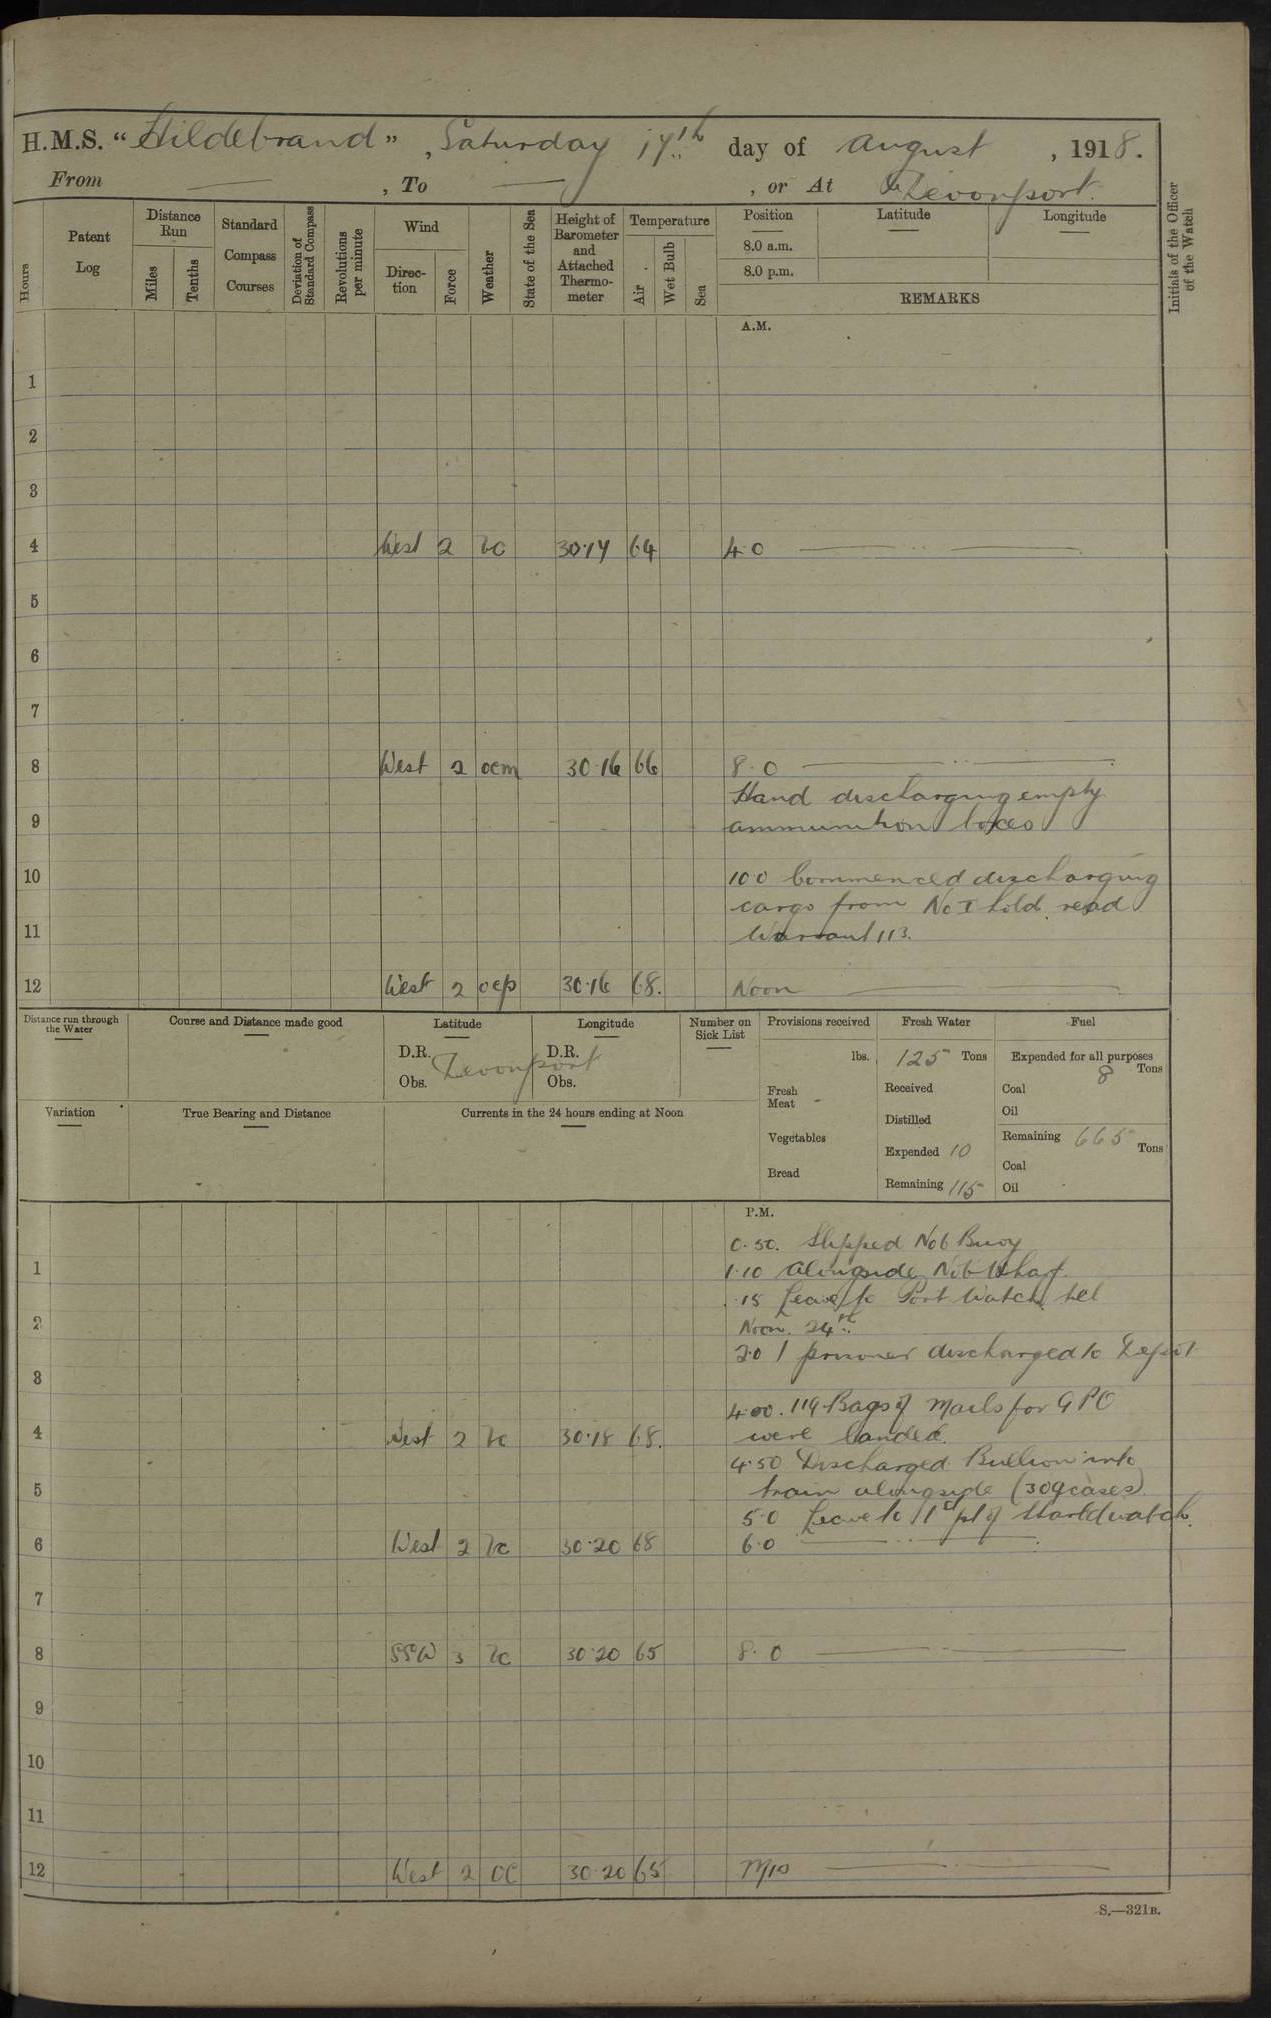 H.M.S. "Hildebrand", Saturday 17th day of August, 1918.
From — , To — , or At Devonport.
Hours
Patent Log
Distance Run
Miles
Tenths
Standard Compass Courses
Deviation of Standard Compass
Revolutions per minute
Wind
Direction
Force
Weather
State of the Sea
Height of Barometer and Attached Thermometer
Temperature
Air
Wet Bulb
Sea
Position
Latitude
Longitude
8.0 a.m.
8.0 p.m.
REMARKS
Initials of the Officer of the Watch
A.M.
1
2
3
4 West 2 bc 30.17 64 4.0
5
6
7
8 West 2 ocm 30.16 66 8.0
Hand discharging empty
9 ammunition boxes
10 10.0 Commenced discharging
cargo from No I hold. read
11 Warrant 113.
12 West 2 ocp 30.16 68. Noon
Distance run through the Water
Course and Distance made good
Latitude
Longitude
D.R.
Obs.
Devonport
D.R.
Obs.
Number on Sick List
Provisions received
lbs.
Fresh Meat -
Vegetables
Bread
Fresh Water
125 Tons
Received
Distilled
Expended 10
Remaining 115
Fuel
Expended for all purposes
8 Tons
Coal
Oil
Remaining 665 Tons
Coal
Oil
Variation
True Bearing and Distance
Currents in the 24 hours ending at Noon
P.M.
0.50. Slipped No 6 Buoy
1 1.10 Alongside No 6 Wharf.
.15 Leave to Port Watch tel
2 Noon. 24th
2.0 1 prisoner discharged to Depot
3
4.00. 119 Bags of Mails for GPO
4 West 2 bc 30.18 68. were landed.
4.50 Discharged Bullion into
5 train alongside (309 cases)
5.0 Leave to 1st pt of Starbd watch.
6 West 2 bc 30.20 68 6.0
7
8 SSW 3 bc 30.20 65 8.0
9
10
11
12 West 2 oc 30.20 65
S.—321B.